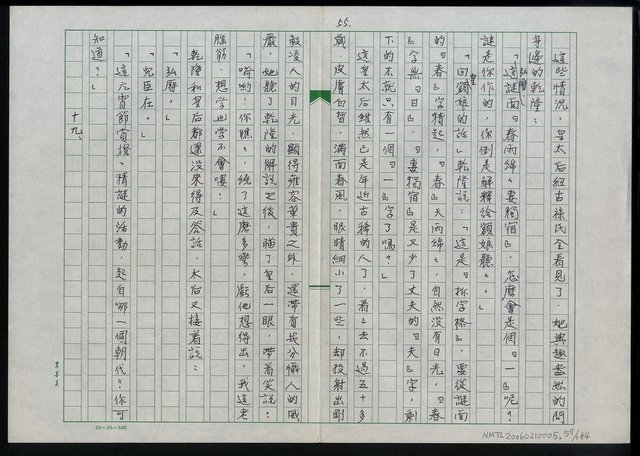 55.
這些情況，皇太后鈕古祿氏全看見了，她興趣盎然的問
身邊的乾隆：
「弘曆，這謎面『春雨綿綿妻獨宿』，怎麼會是個『一』呢？
謎是你作的，你倒是解釋給額娘聽聽。」
「回皇額娘的話，」乾隆說：「這是『拆字格』，要從謎面
的『春』字猜起，『春』天雨綿綿，自然沒有日光，『春
』字無『日』，『妻獨宿』是又少了丈夫的『夫』字，剩
下的不就只有一個『一』字了嗎？」
這皇太后雖然已是年近古稀的人了，看上去不過五十多
歲，皮膚白皙，滿面春風，眼睛細小了一些，却投射出剛
毅凌人的目光，顯得雍容華貴之外，還帶有幾分懾人的威
嚴，她聽了乾隆的解說之後，瞄了皇后一眼，帶着笑說：
「唷喲！你瞧瞧，繞了這麼多彎，虧他想得出，我這老
腦筋，想学也学不會嘍！」
乾隆和皇后都還没來得及答話，太后又接着說：
「弘曆。」
「兒臣在。」
「這元宵節賞燈、猜謎的活動，起自哪一個朝代？你可
知道？」
十九、
20×25=500
NMTL20060210005